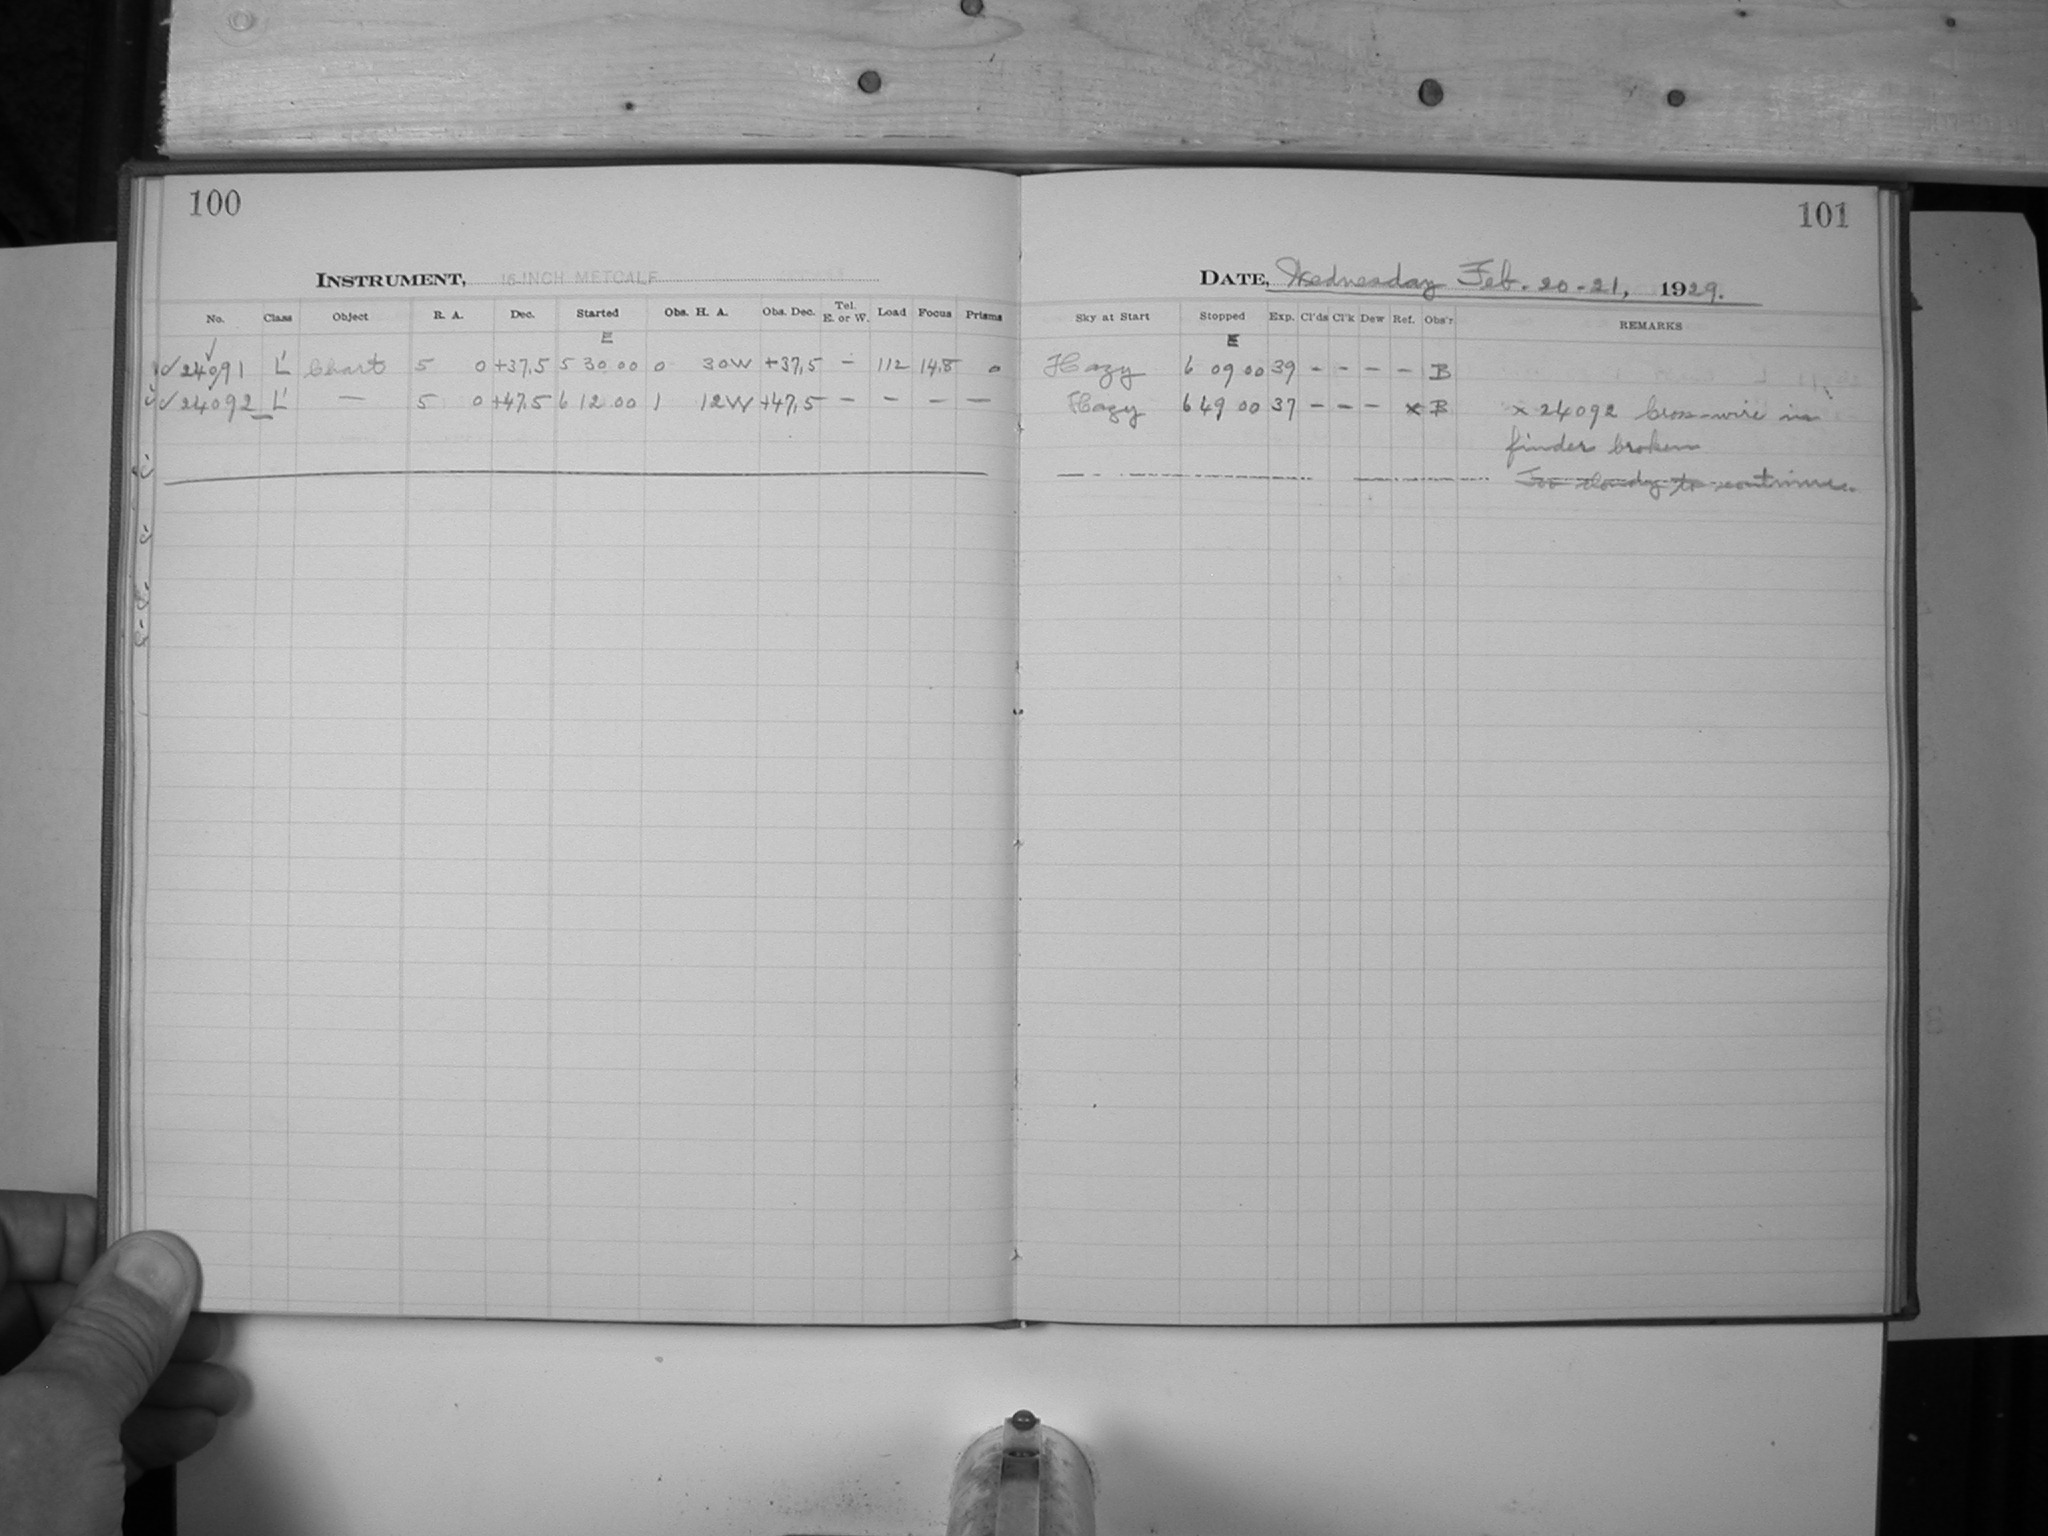 100
INSTRUMENT, 16-INCH METCALF
No. Class Object R. A. Dec. Started Obs. H. A. Obs. Dec. Tel. E. or W. Load Focus Prisms
E
✓ 24091 L' Chart 5 0 +37,5 5 30 00 0 30W +37,5 – 112 14,8 0
✓ 24092 L' — 5 0 +47,5 6 12 00 1 12W +47,5 – – – —
101
DATE, Wednesday Feb. 20-21, 1929.
Sky at Start Stopped Exp. Cl'ds Cl'k Dew Ref. Obs'r REMARKS
E
Hazy 6 09 00 39 – – – – B
Hazy 6 49 00 37 – – – x B x 24092 Cross-wire in
finder broken
Too cloudy to continue.